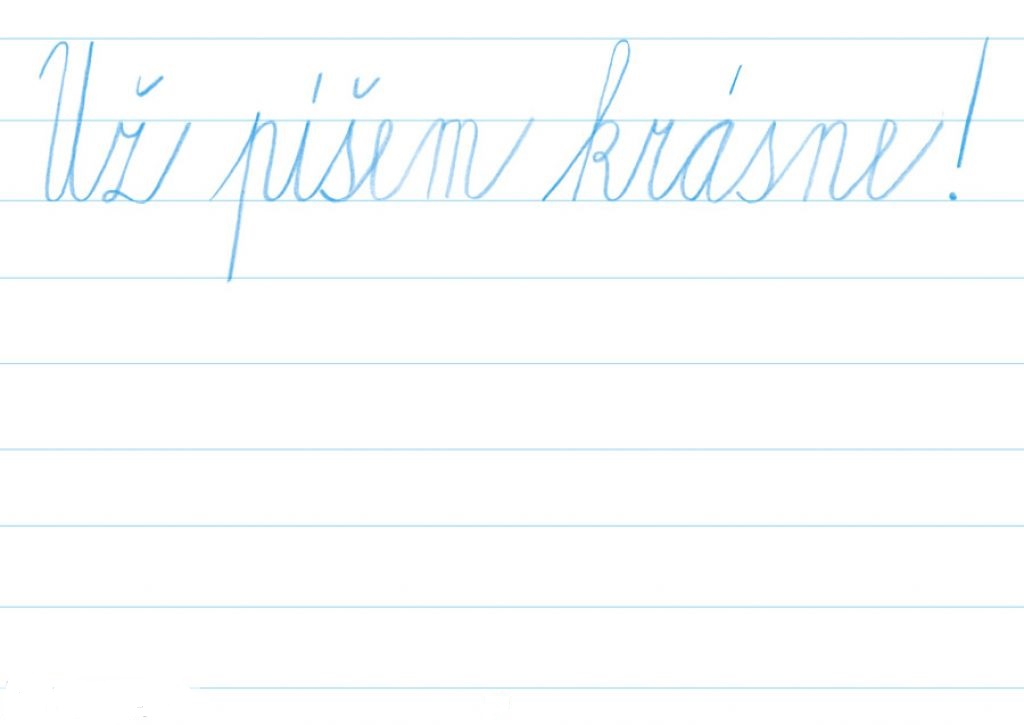 Už píšem krásne!